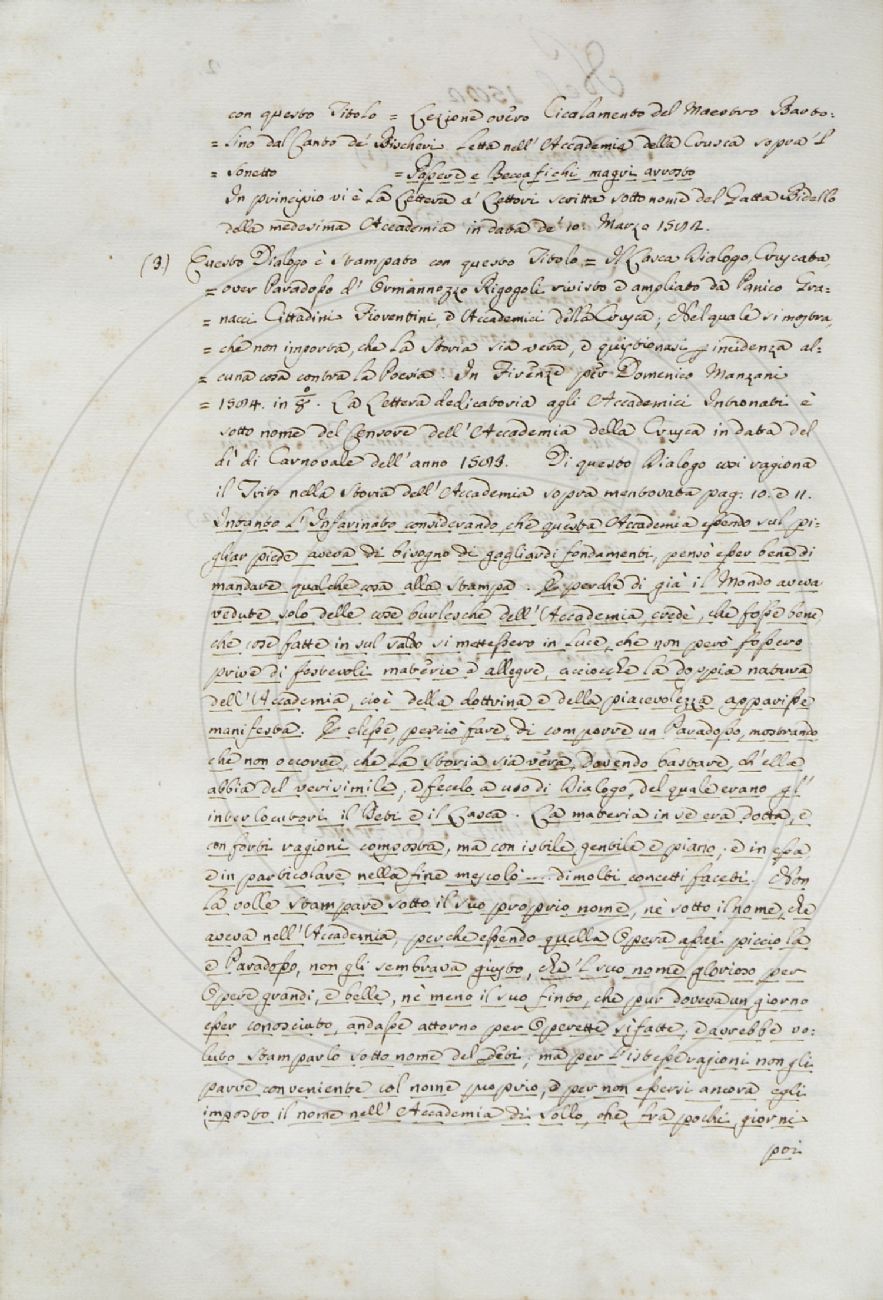 con questo Titolo = Lezione overo Cicalamento del Maestro Barto:
= lino dal Canto de' Bischeri Letta nell' Accademia della Crusca sopra 'l
= Sonetto = Passere e Beccafichi magri arrosto
In principio vi è La Lettera a' Lettori scritta sotto nome del Gatta Bidello
della medesima Accademia in data de' 10. Marzo 1582.
(3.) Questo Dialogo è Stampato con questo Titolo = Il Lasca Dialogo, Cruscata,
= over Paradosso d' Ormannozzo Rigogoli rivisto e ampliato da Panico Gra:
= nacci Cittadini Fiorentini, e Accademici della Crusca; Nel quale si mostra,
= che non importa, che La Storia sia vera, e quistionasi p incidenza al:
= cuna cosa contra la Poesia. In Firenze per Domenico Manzani
= 1584. in 8.º La Lettera dedicatoria agli Accademici Intronati è
sotto nome del Censore dell' Accademia della Crusca in data del
dì di Carnovale dell' anno 1583. Di questo Dialogo così ragiona
il Trito nella Storia dell' Accademia sopra mentovata pag: 10. e 11.
Intanto L' Infarinato considerando, che questa Accademia essendo sul pi:
gliar piede aveva di bisogno de gagliardi fondamenti, pensò esser bene di
mandare qualche cosa alla Stampa. E perche di già il Mondo aveva
vedute solo delle cose burlesche dell' Accademia, credè, che fosse bene
che cose fatte in sul saldo si mettessero in Luce, che non però fossero
prive di festevoli materie e allegre, acciocche la doppia natura
dell' Accademia, cioè della dottrina e della piacevolezza apparisse
manifesta. E elesse, perciò fare, di comporre un Paradosso, mostrando
che non occorre, che La Storia sia vera, dovendo bastare, ch' ella
abbia del verisimile, e fecelo a uso di Dialogo, del quale erano gl'
interlocutori il Deti e il Lasca. La materia in se era dotta, e
con forti ragioni composta, ma con istile gentile e piano; e in essa,
e in particolare nella fine mescolò ... di molti concetti faceti. Non
la volle stampare sotto il suo proprio nome, nè sotto il nome, che
aveva nell' Accademia, perche essendo quella Opera assai picciola
e Paradosso, non gli sembrava giusto, che 'l suo nome glorioso per
Opere grandi, e belle, nè meno il suo finto, che pur doveva un giorno
esser conosciuto, andasse attorno per Operette sì fatte, e avrebbe vo:
luto stamparlo sotto nome del Deti; ma per l' istesse ragioni non gli
parve conveniente col nome proprio, e per non essersi ancora egli
imposto il nome nell' Accademia di Sollo, che fra pochi giorni
poi